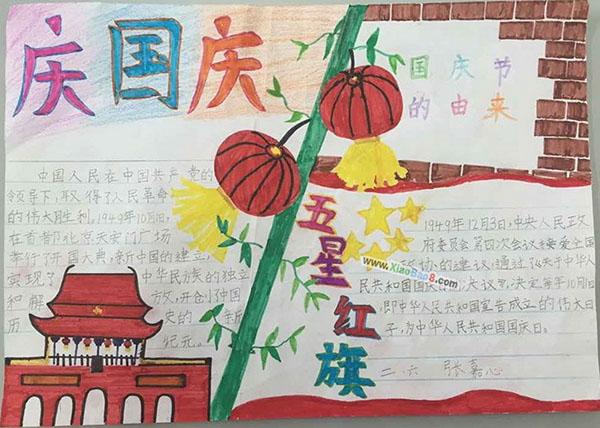 庆国庆
国庆节
的由来
中国人民在中国共产党的
领导下,取得了人民革命
的伟大胜利。1949年10月1日,
在首都北京天安门广场
举行了开国大典,新中国的建立,
实现了 中华民族的独立
和解 放,开创了中国
历 史的 新
纪元。
五星红旗
1949年12月3日,中央人民政
府委员会第四次会议接受全国
的建议,通过了《关于中华人
民共和国国庆 决议》,决定每年10月1日,
即中华人民共和国宣告成立的伟大日
子,为中华人民共和国国庆日。
二.六 张嘉心
www.XiaoBao8.com